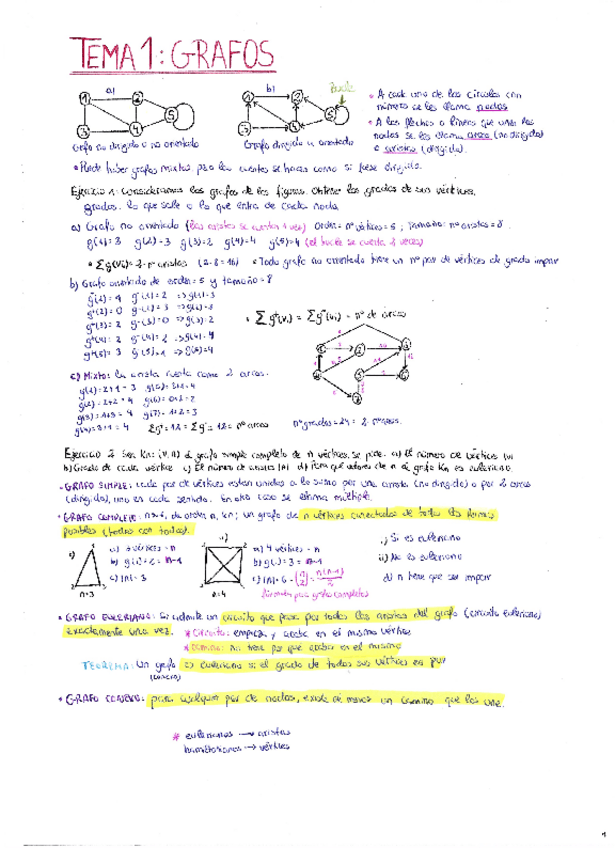 TEMA 1: GRAFOS
a)
b)
Bucle
1 2 3 4 5
1 2 3 4 5
Grafo no dirigido o no orientado
Grafo dirigido u orientado
• A cada uno de los círculos con
número se les llama nodos
• A las flechas o líneas que unen los
nodos se les llama arco (no dirigido)
o arista (dirigido).
• Puede haber grafos mixtos, pero las cuentas se hacen como si fuese dirigido.
Ejercicio 1: Consideramos los grafos de las figuras. Obtener los grados de sus vértices.
grados: lo que sale o lo que entra de cada nodo
a) Grafo no orientado (las aristas se cuentan 1 vez) Orden = nº vértices = 5 ; Tamaño: nº aristas = 8
g(1)=3 g(2)=3 g(3)=2 g(4)=4 g(5)=4 (el bucle se cuenta 2 veces)
• Σg(Vi) = 2· nº aristas (2·8=16) • Todo grafo no orientado tiene un nº par de vértices de grado impar
b) Grafo orientado de orden = 5 y tamaño = 8
• Σg⁺(Vi) = Σg⁻(Vi) = nº de arcos
c) Mixto: la arista cuenta como 2 arcos.
Σg⁺=12 = Σg⁻ = 12 = nº arcos
nº grados = 24 = 2· nº arcos.
Ejercicio 2 Sea Kn: (V,A) el grafo simple completo de n vértices, se pide: a) El número de vértices
b) Grado de cada vértice c) El número de aristas (A) d) Para qué valores de n el grafo Kn es euleriano.
• GRAFO SIMPLE: cada par de vértices están unidos a lo sumo por una arista (no dirigido) o por 2 arcos
(dirigido), uno en cada sentido. En otro caso se llama múltiple.
• GRAFO COMPLETO: de orden n, Kn; un grafo de n vértices conectados de todas las formas
posibles (todos con todos).
i)
a) 3 vértices = n
b) g(i) = 2 = n-1
c) |A| = 3
n=3
ii)
a) 4 vértices = n
b) g(i) = 3 = n-1
c) |A| = 6 = (n 2) = n(n-1)/2
n=4
Fórmula para grafos completos
i) Sí es euleriano
ii) No es euleriano
d) n tiene que ser impar
• GRAFO EULERIANO: Si admite un circuito que pase por todas las aristas del grafo (circuito euleriano)
exactamente una vez. * Circuito: empieza y acaba en el mismo vértice
* Camino: no tiene por que acabar en el mismo
TEOREMA: Un grafo es euleriano si el grado de todos sus vértices es par
(conexo)
• GRAFO CONEXO: para cualquier par de nodos, existe al menos un camino que los une.
* eulerianos → aristas
hamiltonianos → vértices
1